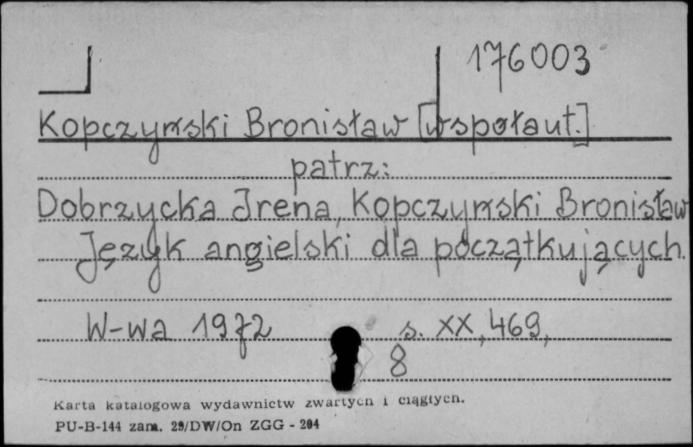 176003
Kopczyński Bronisław [współaut.]
patrz:
Dobrzycka Irena, Kopczyński Bronisław
Język angielski dla początkujących.
W-wa 1972 s. XX, 469,
8
Karta katalogowa wydawnictw zwartych i ciągłych.
PU-B-144 zam. 29/DW/On ZGG - 204